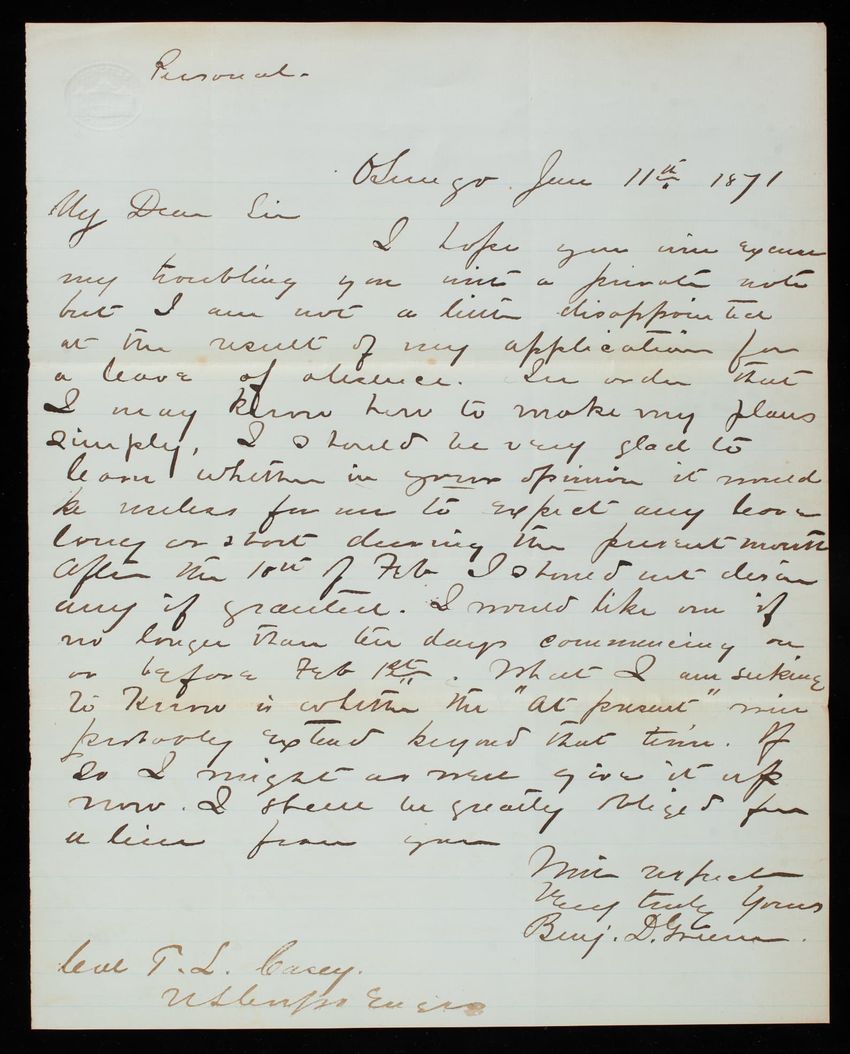 Personal.
Oswego Jan 11th 1871
My Dear Sir
I hope you will excuse
my troubling you with a private note
but I am not a little disappointed
at the result of my application for
a leave of absence. In order that
I may know how to make my plans
simply, I should be very glad to
learn whether in your opinion it would
be useless for me to expect any leave
long or short during the present month
After the 10th of Feb I should not desire
any if granted. I would like one if
no longer than ten days commencing on
or before Feb 1st. What I am seeking
to know is whether the "At present" will
probably extend beyond that time. If
so I might as well give it up
now. I shall be greatly obliged for
a line from you
With respect
Very truly yours
Benj. D. Greene.
Col T. L. Casey.
US Corps Engrs